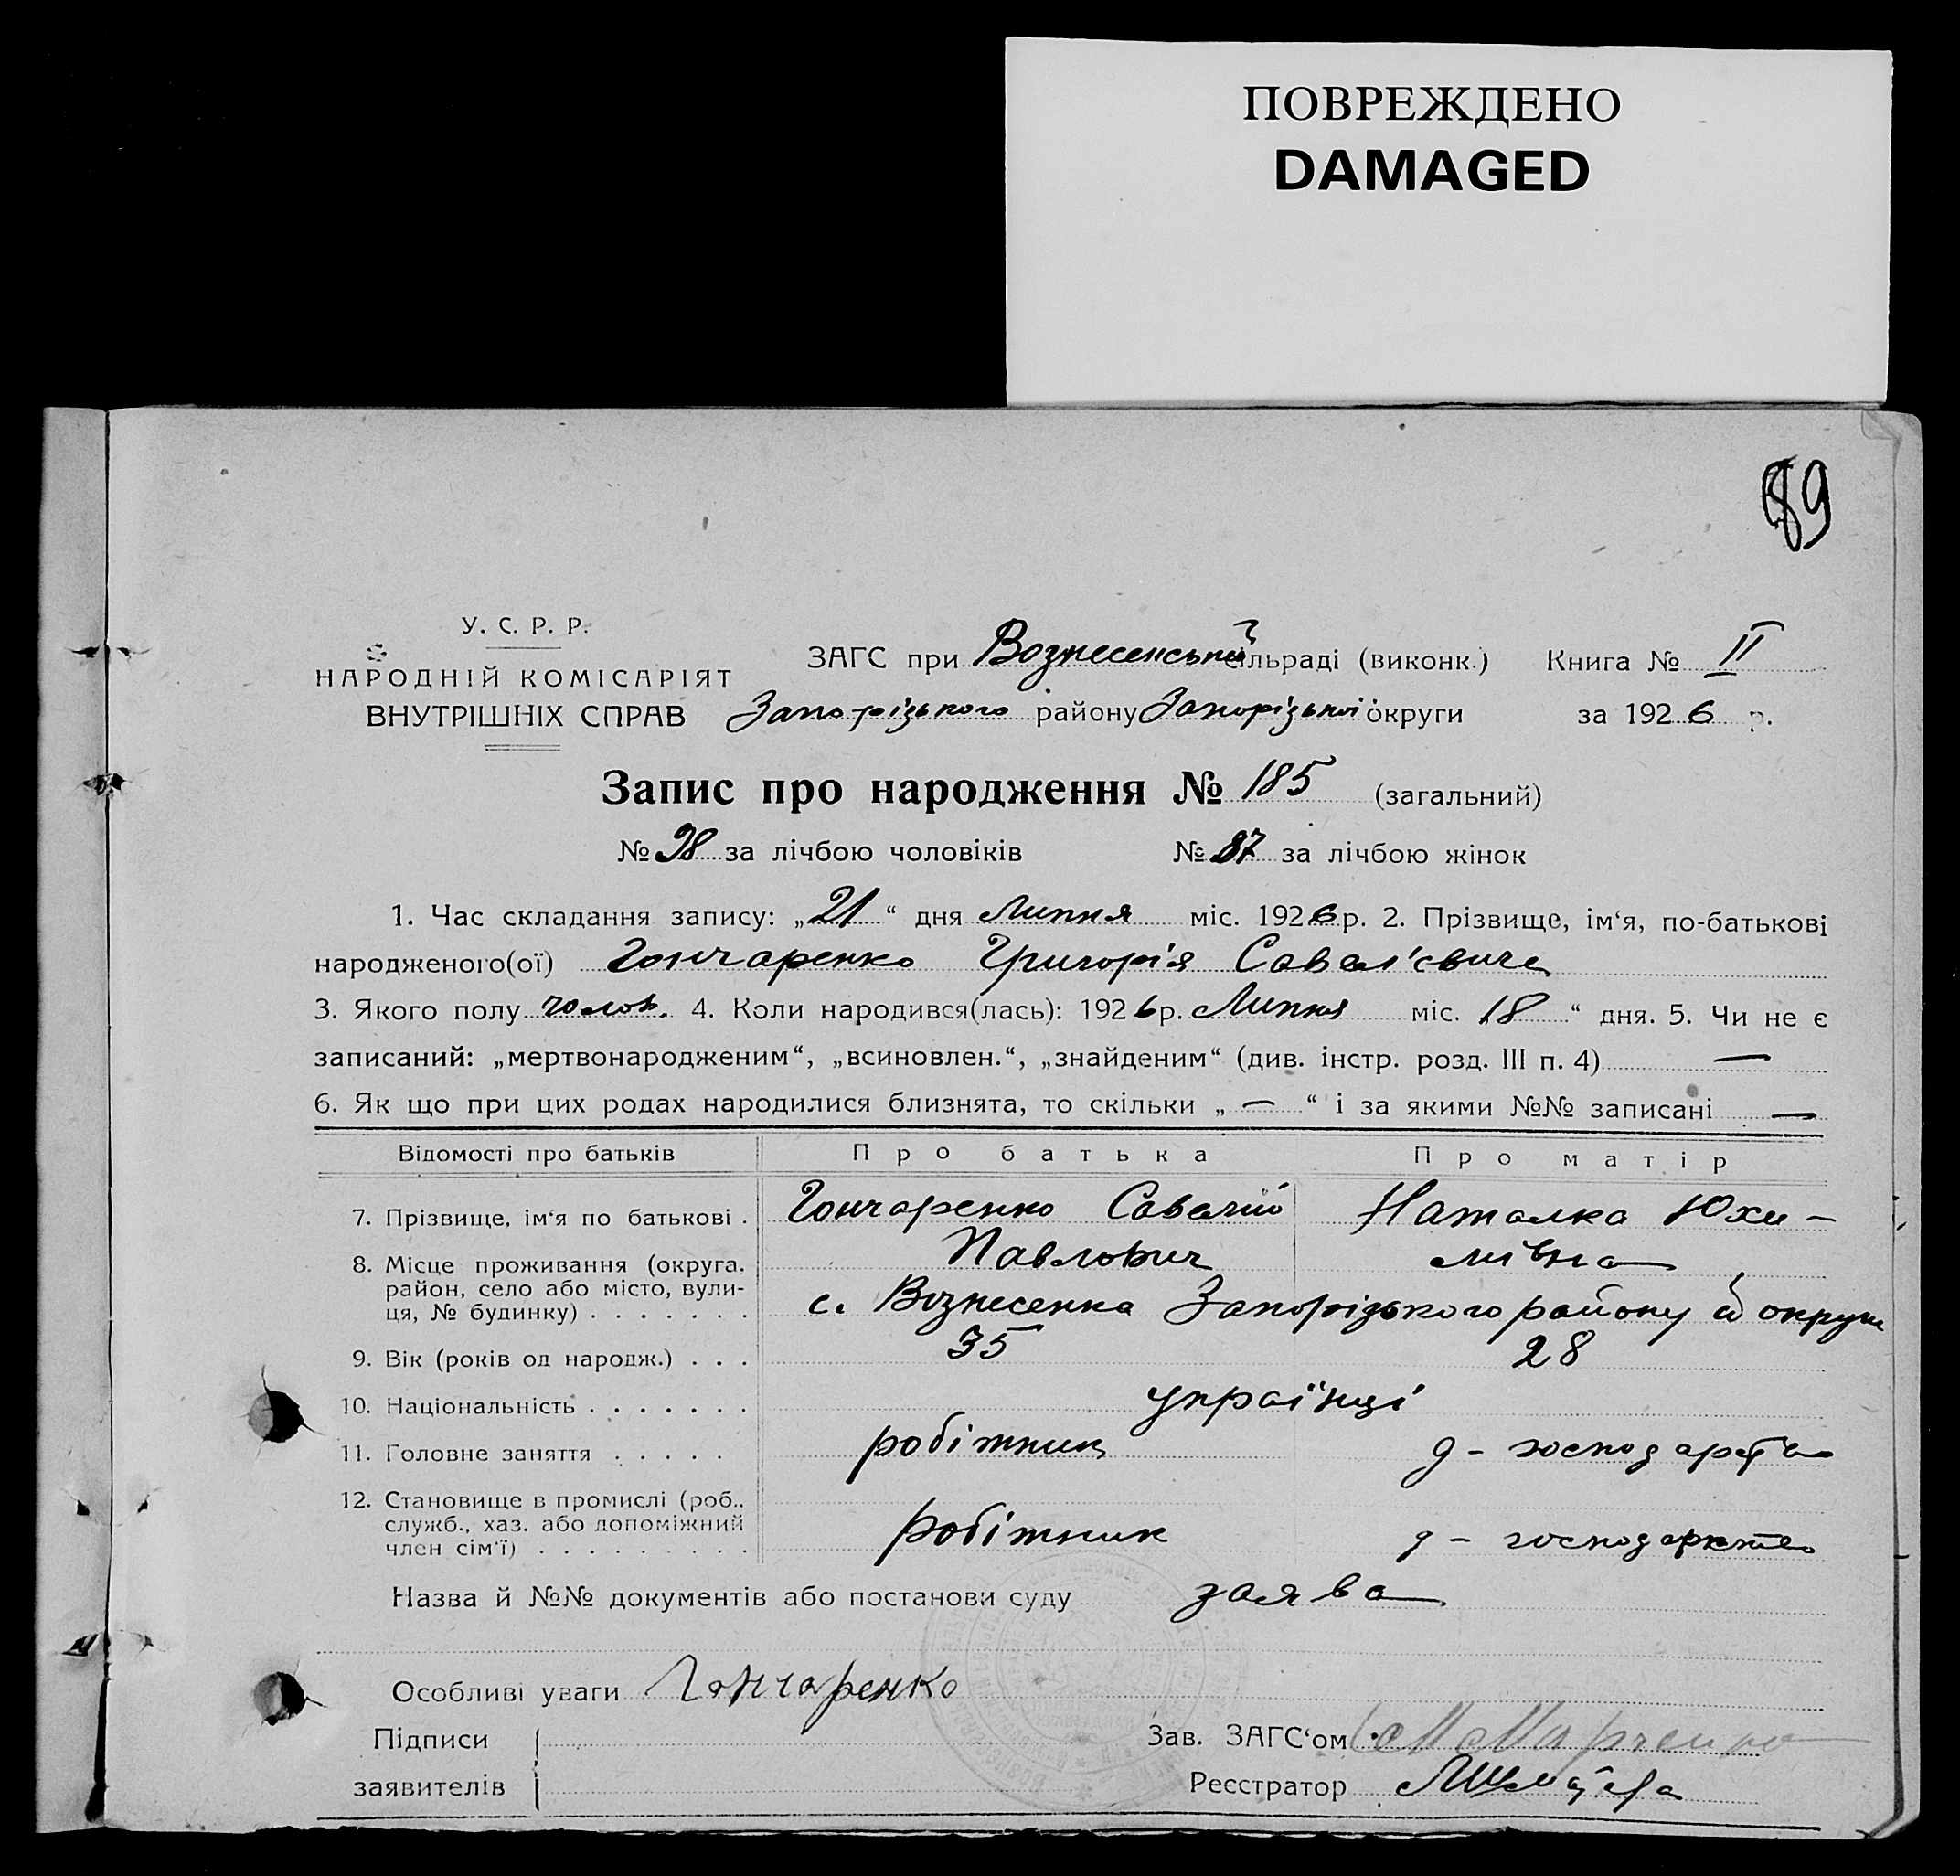 ПОВРЕЖДЕНО
DAMAGED
89
У. С. Р. Р.
НАРОДНІЙ КОМІСАРІЯТ
ВНУТРІШНІХ СПРАВ
ЗАГС при Вознесенській сільраді (виконк.) Книга № II
Запорізького району Запорізької округи за 1926 р.
Запис про народження № 185 (загальний)
№ 98 за лічбою чоловіків № 87 за лічбою жінок
1. Час складання запису: „21“ дня Липня міс. 1926 р. 2. Прізвище, ім‘я, по-батькові
народженого(ої) Гончаренко Григорія Савел'євича
3. Якого полу чолов. 4. Коли народився(лась): 1926 р. Липня міс. „18“ дня. 5. Чи не є
записаний: „мертвонародженим“, „всиновлен.“, „знайденим“ (див. інстр. розд. III п. 4) —
6. Як що при цих родах народилися близнята, то скільки „ — “ і за якими №№ записані —
Відомості про батьків Про батька Про матір
7. Прізвище, ім‘я по батькові . Гончаренко Савелій Наталка Юхи-
Павлович мівна
8. Місце проживання (округа,
район, село або місто, вули-
ця, № будинку) . . . . . . . с. Вознесенка Запорізького району й округи
9. Вік (років од народж.) . . . 35 28
10. Національність . . . . . . . українці
11. Головне заняття . . . . . робітник д - господарство
12. Становище в промислі (роб.,
служб., хаз. або допоміжний
член сім‘ї) . . . . . . . . . робітник д - господарство
Назва й №№ документів або постанови суду заява
Особливі уваги Гончаренко
Підписи
заявителів
Зав. ЗАГС‘ом
Реєстратор